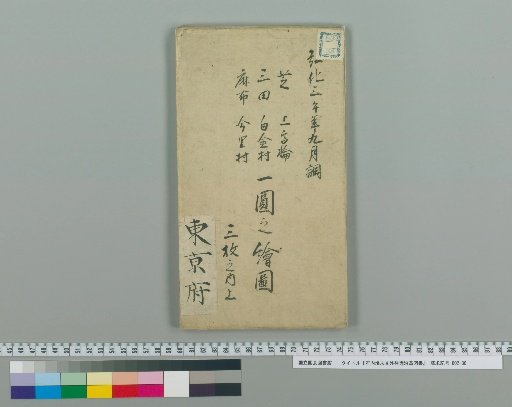 弘化三午年九月調
芝 上高輪
三田 白金村
麻布 今里村
一圓之繪圖
三枚之内上
東京府